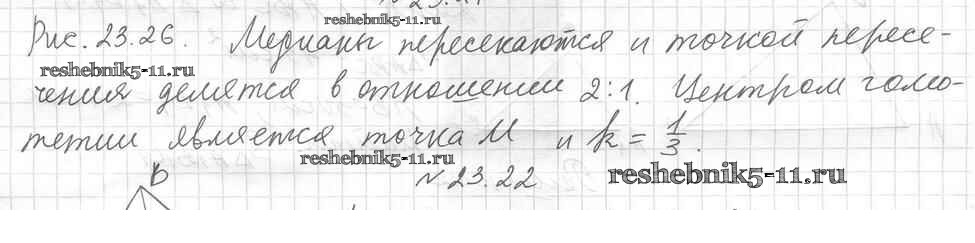 reshebnik5-11.ru
Рис. 23.26. Медианы пересекаются и точкой пересе-
reshebnik5-11.ru
чения делятся в отношении 2:1. Центром гомо-
тетии является точка M и k = 1/3.
reshebnik5-11.ru
N 23.22
reshebnik5-11.ru
B